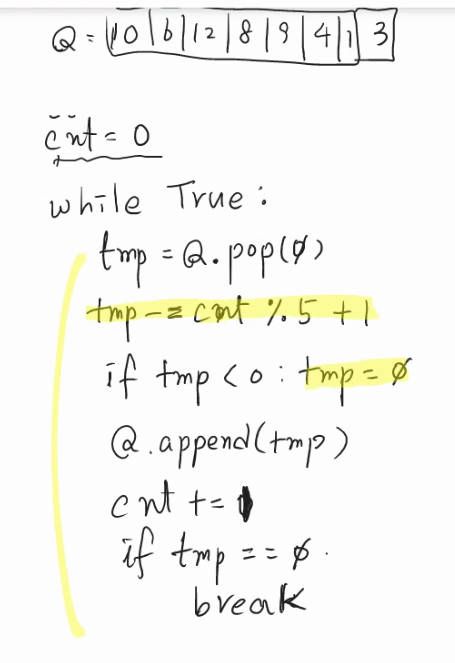 Q = 10 6 12 8 9 4 1 3
cnt = 0
while True:
tmp = Q.pop(0)
tmp -= cnt % 5 + 1
if tmp < 0 : tmp = 0
Q.append(tmp)
cnt += 1
if tmp == 0.
break